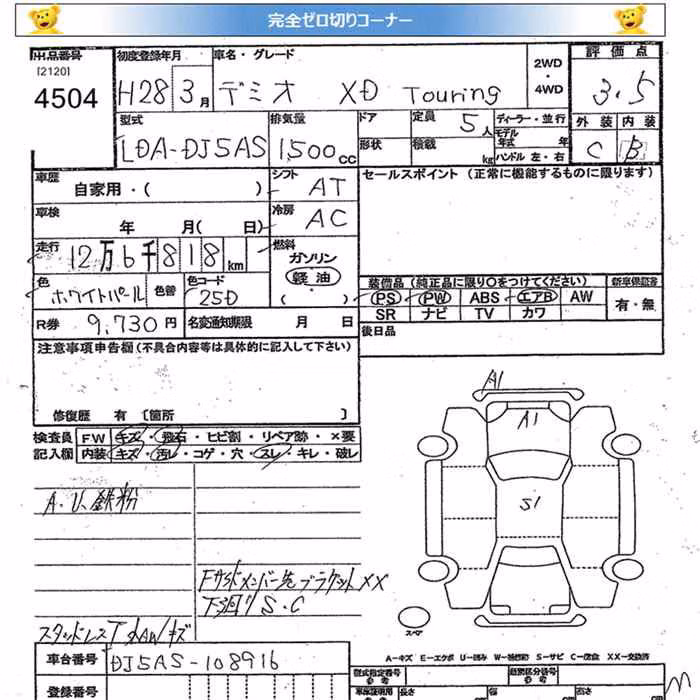 完全ゼロ切りコーナー
出品番号
[2120]
4504
初度登録年月
H28 3月
車名・グレード
デミオ XD Touring
2WD
・
4WD
評価点
3.5
型式
LDA-DJ5AS
排気量
1,500cc
ドア
形状
定員 5人
積載 kg
ディーラー・並行
モデル年式 年
ハンドル 左・右
外装 内装
C B
車歴
自家用・( )
シフト AT
車検
年 月( 日)
冷房 AC
セールスポイント (正常に機能するものに限ります)
走行
12万6千818km
燃料
ガソリン
軽油
( )
色
ホワイトパール
色替
色コード
25D
装備品(純正品に限り〇をつけてください)
PS PW ABS エアB AW
SR ナビ TV カワ
新車保証書
有・無
R券 9,730円
名変通知期限 月 日
後日品
注意事項申告欄(不具合内容等は具体的に記入して下さい)
修復歴 有 [箇所 ]
検査員
記入欄
FW キズ・飛石・ヒビ割・リペア跡・×要
内装 キズ・汚レ・コゲ・穴・スレ・キレ・破レ
A1
A1
S1
A・U、鉄粉
Fサイドメンバー先ブラケットXX
下廻りS・C
スタッドレスT 社外AWキズ
スペア
車台番号 DJ5AS-108916
A-キズ E-エクボ U-凹み W-補修跡 S-サビ C-腐食 XX-交換済
登録番号
型式指定番号
参考
類別区分番号
参考
車庫証明用
参考
長さ
幅
高さ